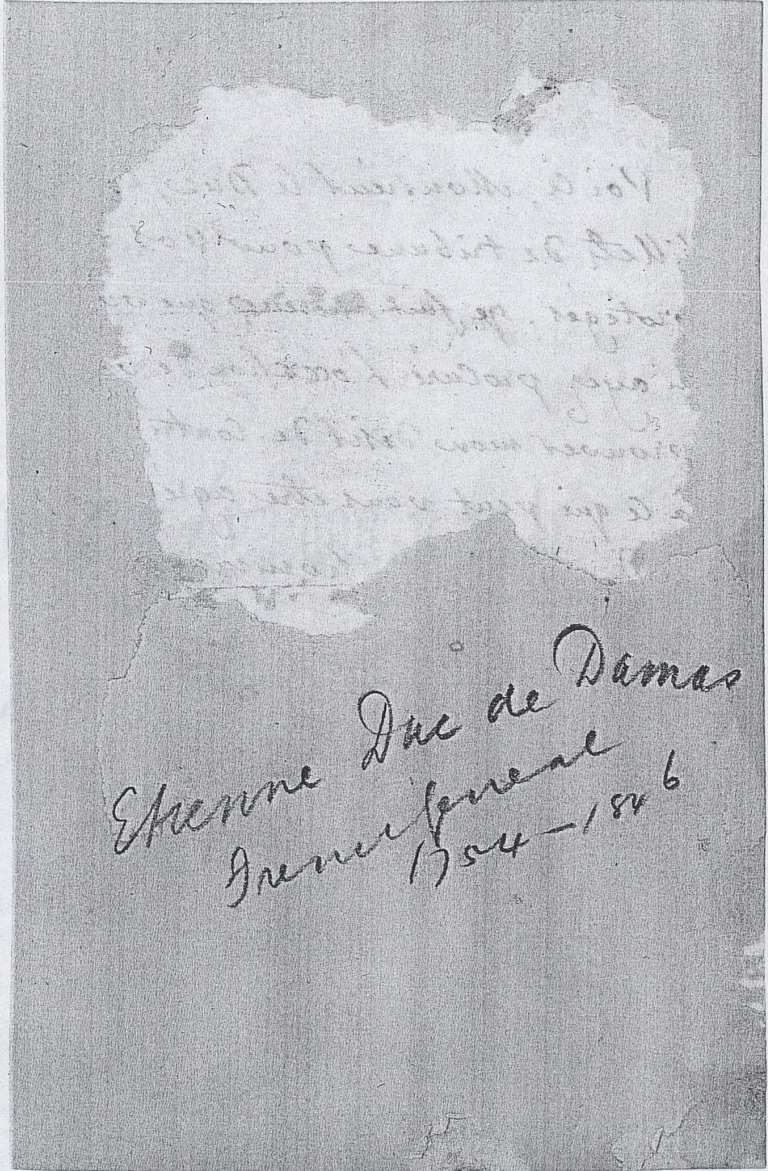 Voilà, Monsieur le Duc,
de tribune pour vos
protégés. Je fait que
ayez procuré l'occasion de
mon désir de
à ce qui peut vous être agré
Etienne Duc de Damas
French General
1754–1846